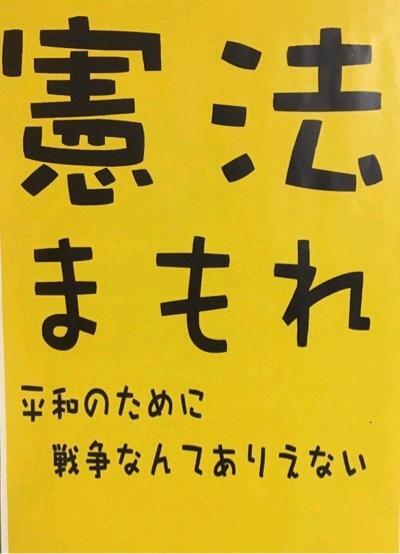 憲法
まもれ
平和のために
戦争なんてありえない